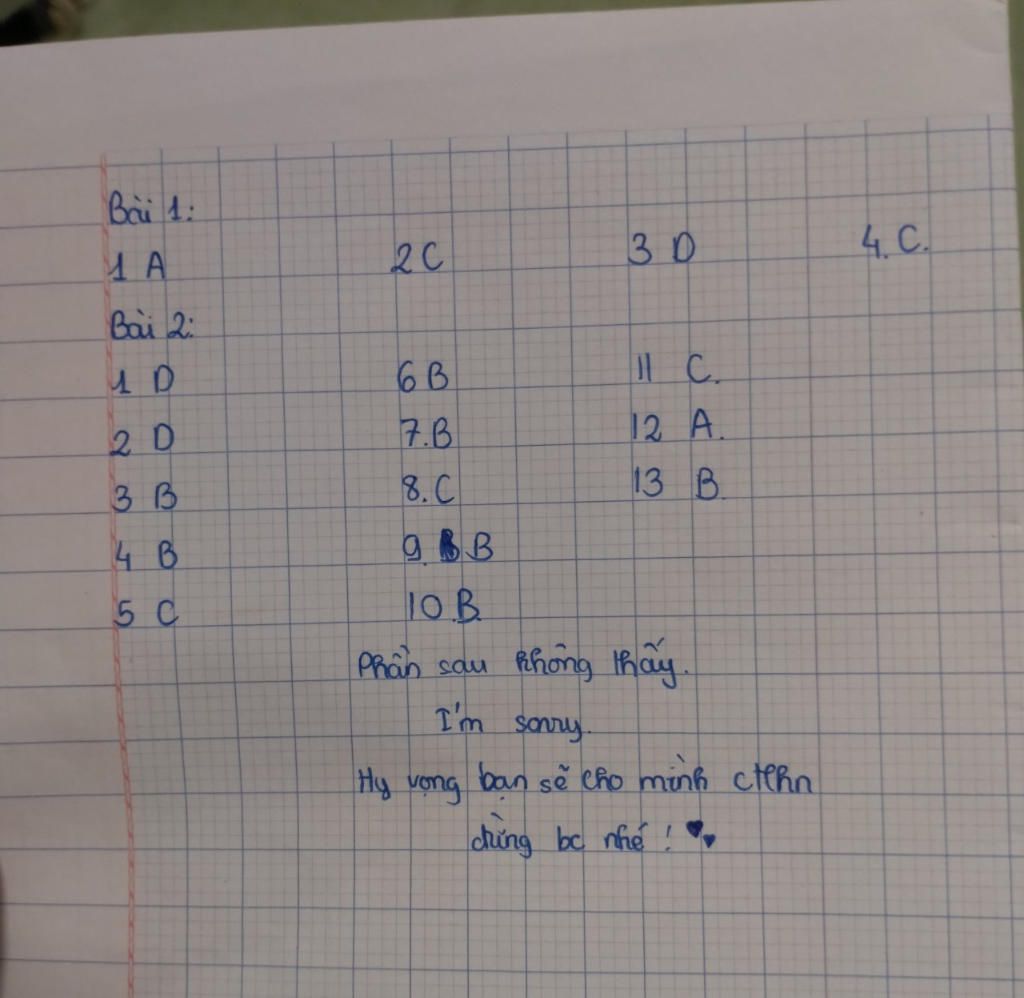 Bài 1:
1 A 2 C 3 D 4. C.
Bài 2:
1 D 6 B 11 C.
2 D 7. B 12 A.
3 B 8. C 13 B
4 B 9. B B
5 C 10. B.
Phần sau không thấy.
I'm sorry.
Hy vọng bạn sẽ cho mình ctlhn
đừng bc nhé!